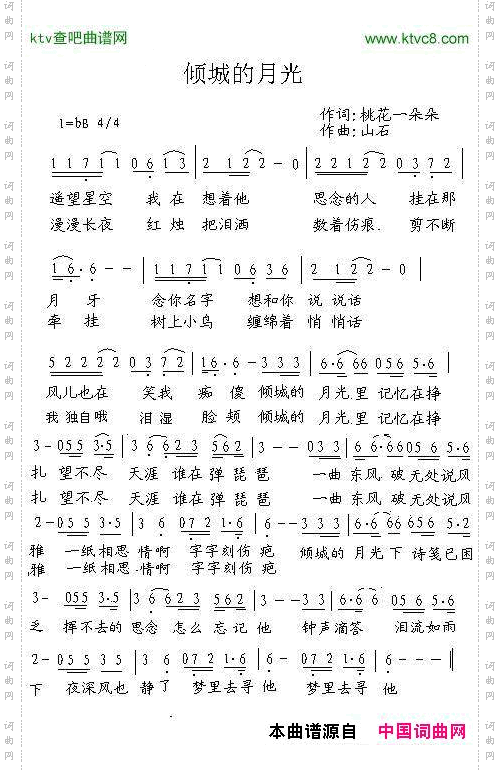 ktv查吧曲谱网
www.ktvc8.com
倾城的月光
1=bB 4/4
作词:桃花一朵朵
作曲:山石
1 1 7 1 1 0 6 1 3 | 2 1 2 2 - 0 | 2 2 1 2 1 0 3 7 2 |
遥望星空 我在 想着他 思念的人 挂在那
漫漫长夜 红烛 把泪洒 数着伤痕. 剪不断
1 6· 6 - - | 1 1 7 1 1 0 6 3 6 | 2 1 2 2 - 0 |
月 牙 念你名字 想和你 说说话
牵 挂 树上小鸟 缠绵着 悄悄话
5 2 2 2 2 0 3 7 2 | 1 6· 6 - 3 3 3 | 6·6 6 6 0 5 6 6·6 |
风儿也在 笑我 痴傻 倾城的 月光.里 记忆在挣
我独自哦 泪湿 脸颊 倾城的 月光.里 记忆在挣
3 - 0 5 5 3·5 | 3 6 6 2 3 5 3 | 3 - - 0 3 3 | 6·6 6 0 5 6 5·6 |
扎 望不尽 天涯 谁在弹琵琶 一曲 东风.破无处说风
扎 望不尽 天涯 谁在弹琵琶 一曲 东风.破无处说风
2 - 0 5 5 3·5 | 3 6 0 7 2 1·6 | 6 - 3 3 3 | 6·6 6 6 0 6 5 5·2 |
雅 一纸相思 情啊 字字刻伤 疤 倾城的 月光下 诗笺已困
雅 一纸相思.情啊 字字刻伤 疤
3 - 0 5 5 3·5 | 3 6 6 2 3 5·6 | 2 - - 3 3 | 6·6 6 0 5 6 5·6 |
乏 挥不去的 思念 怎么 忘记他 钟声滴答 泪流如雨
2 - 0 5 5 3·5 | 3 6 0 7 2 1·6 | 6 - 3 0 7 2 1·6 | 6 - - 0 ‖
下 夜深风也 静了 梦里去寻 他 梦里去寻 他
本曲谱源自 中国词曲网